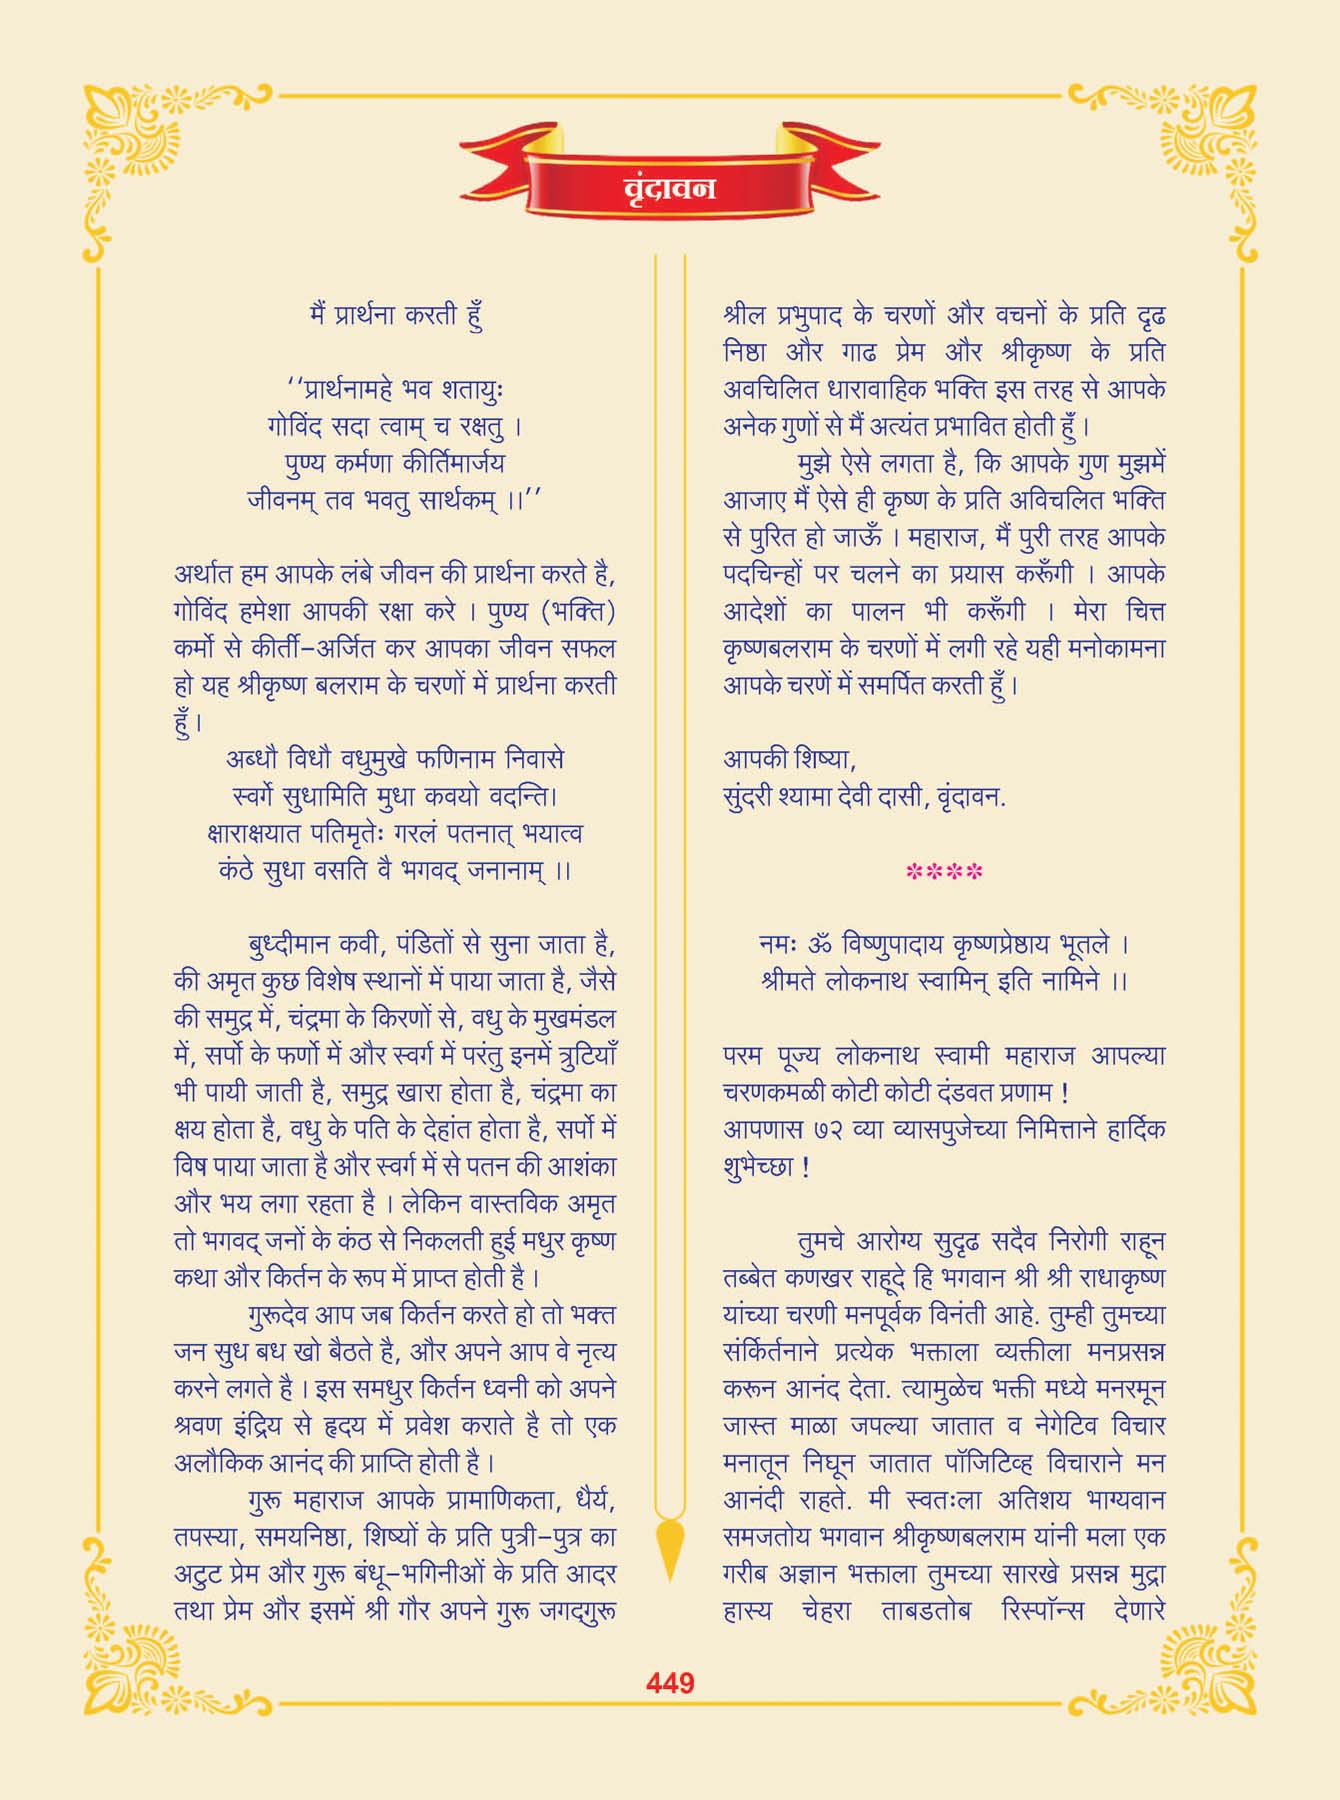 वृंदावन
मैं प्रार्थना करती हुँ
‘‘प्रार्थनामहे भव शतायुः
गोविंद सदा त्वाम् च रक्षतु ।
पुण्य कर्मणा कीर्तिमार्जय
जीवनम् तव भवतु सार्थकम् ।।’’
अर्थात हम आपके लंबे जीवन की प्रार्थना करते है,
गोविंद हमेशा आपकी रक्षा करे । पुण्य (भक्ति)
कर्मो से कीर्ती-अर्जित कर आपका जीवन सफल
हो यह श्रीकृष्ण बलराम के चरणों में प्रार्थना करती
हुँ ।
अब्धौ विधौ वधुमुखे फणिनाम निवासे
स्वर्गे सुधामिति मुधा कवयो वदन्ति।
क्षाराक्षयात पतिमृतेः गरलं पतनात् भयात्व
कंठे सुधा वसति वै भगवद् जनानाम् ।।
बुध्दीमान कवी, पंडितों से सुना जाता है,
की अमृत कुछ विशेष स्थानों में पाया जाता है, जैसे
की समुद्र में, चंद्रमा के किरणों से, वधु के मुखमंडल
में, सर्पो के फर्णो में और स्वर्ग में परंतु इनमें त्रुटियाँ
भी पायी जाती है, समुद्र खारा होता है, चंद्रमा का
क्षय होता है, वधु के पति के देहांत होता है, सर्पो में
विष पाया जाता है और स्वर्ग में से पतन की आशंका
और भय लगा रहता है । लेकिन वास्तविक अमृत
तो भगवद् जनों के कंठ से निकलती हुई मधुर कृष्ण
कथा और किर्तन के रूप में प्राप्त होती है ।
गुरूदेव आप जब किर्तन करते हो तो भक्त
जन सुध बध खो बैठते है, और अपने आप वे नृत्य
करने लगते है । इस समधुर किर्तन ध्वनी को अपने
श्रवण इंद्रिय से हृदय में प्रवेश कराते है तो एक
अलौकिक आनंद की प्राप्ति होती है ।
गुरू महाराज आपके प्रामाणिकता, धैर्य,
तपस्या, समयनिष्ठा, शिष्यों के प्रति पुत्री-पुत्र का
अटुट प्रेम और गुरू बंधू-भगिनीओं के प्रति आदर
तथा प्रेम और इसमें श्री गौर अपने गुरू जगद्गुरू
श्रील प्रभुपाद के चरणों और वचनों के प्रति दृढ
निष्ठा और गाढ प्रेम और श्रीकृष्ण के प्रति
अवचिलित धारावाहिक भक्ति इस तरह से आपके
अनेक गुणों से मैं अत्यंत प्रभावित होती हुँ ।
मुझे ऐसे लगता है, कि आपके गुण मुझमें
आजाए मैं ऐसे ही कृष्ण के प्रति अविचलित भक्ति
से पुरित हो जाऊँ । महाराज, मैं पुरी तरह आपके
पदचिन्हों पर चलने का प्रयास करूँगी । आपके
आदेशों का पालन भी करूँगी । मेरा चित्त
कृष्णबलराम के चरणों में लगी रहे यही मनोकामना
आपके चरणें में समर्पित करती हुँ ।
आपकी शिष्या,
सुंदरी श्यामा देवी दासी, वृंदावन.
****
नमः ॐ विष्णुपादाय कृष्णप्रेष्ठाय भूतले ।
श्रीमते लोकनाथ स्वामिन् इति नामिने ।।
परम पूज्य लोकनाथ स्वामी महाराज आपल्या
चरणकमळी कोटी कोटी दंडवत प्रणाम !
आपणास ७२ व्या व्यासपुजेच्या निमित्ताने हार्दिक
शुभेच्छा !
तुमचे आरोग्य सुदृढ सदैव निरोगी राहून
तब्बेत कणखर राहूदे हि भगवान श्री श्री राधाकृष्ण
यांच्या चरणी मनपूर्वक विनंती आहे. तुम्ही तुमच्या
संर्कितनाने प्रत्येक भक्ताला व्यक्तीला मनप्रसन्न
करून आनंद देता. त्यामुळेच भक्ती मध्ये मनरमून
जास्त माळा जपल्या जातात व नेगेटिव विचार
मनातून निघून जातात पॉजिटिव्ह विचाराने मन
आनंदी राहते. मी स्वतःला अतिशय भाग्यवान
समजतोय भगवान श्रीकृष्णबलराम यांनी मला एक
गरीब अज्ञान भक्ताला तुमच्या सारखे प्रसन्न मुद्रा
हास्य चेहरा ताबडतोब रिस्पॉन्स देणारे
449